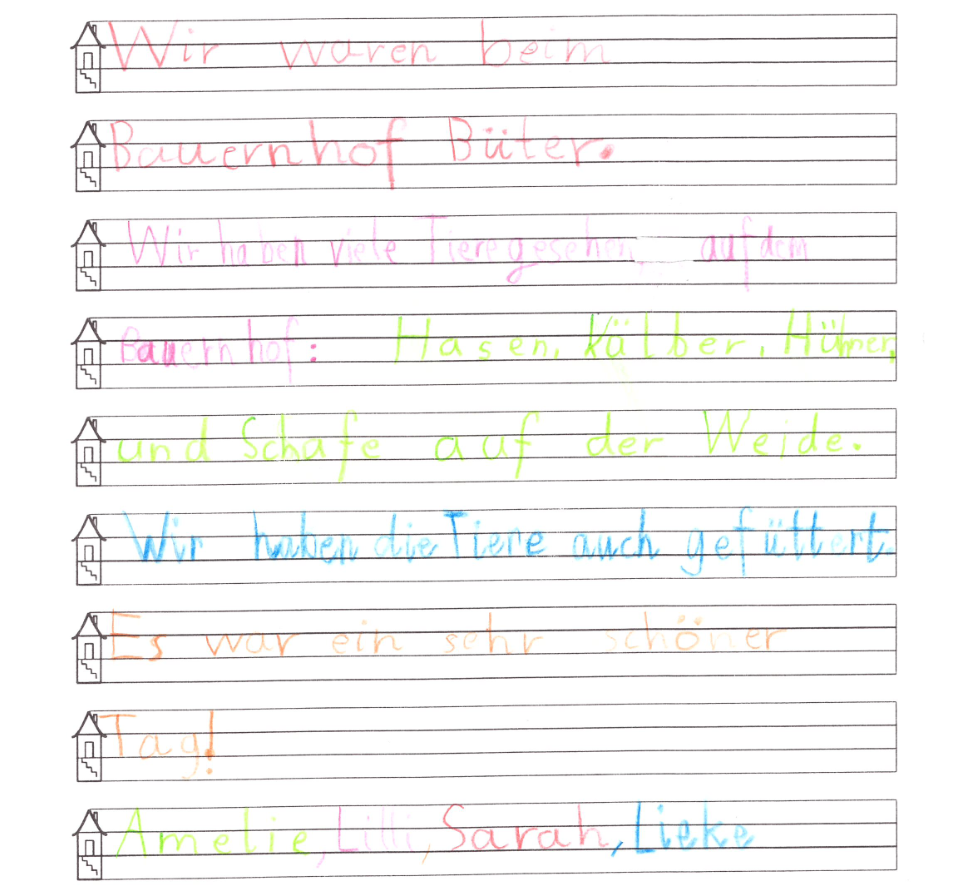 Wir waren beim
Bauernhof Büter.
Wir haben viele Tiere gesehen auf dem
Bauernhof: Hasen, Kälber, Hühner,
und Schafe auf der Weide.
Wir haben die Tiere auch gefüttert.
Es war ein sehr schöner
Tag!
Amelie, Lilli, Sarah, Lieke